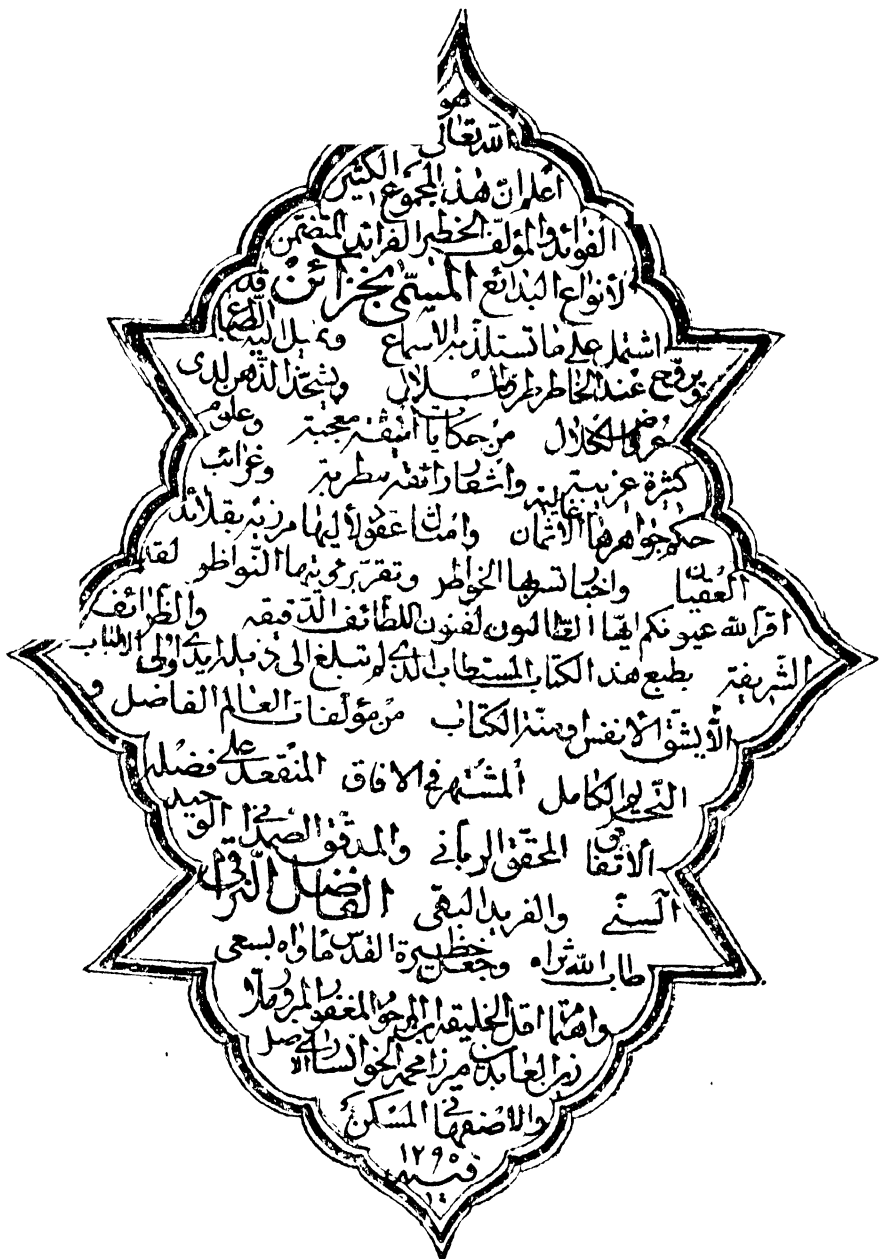 هو
الله تعالى
اعلم انّ هذا المجموع الكثير
الفوائد والمؤلّف الخطير الفرائد المتضمن
لأنواع البدائع المسمّى بخزائن قد
اشتمل على ما تستلذ به الأسماع ويميل اليه الطباع
ويرتفع عند الخاطر الملال ويشحّذ الذّهن لدى
عروض الكلال من حكايات انيقة معجبة وعلوم
كثيرة غريبة واشعار رائقة مطربة وغرائب
حكم جواهرها غالية الاثمان وامثال عقود لأليها مزرية بقلائد
العقيان واخبار تسر بها الخواطر وتقر برؤيتها النّواظر لقد
اقر الله عيونكم ايّها الطّالبون لفنون اللطائف الدّقيقه والظرائف
الشّريفة بطبع هذا الكتاب المستطاب الذي لم تبلغ الى ذيله ايدي اولى الالباب
الّا بشقّ الانفس ومنّة الكتّاب من مؤلّفات العالم الفاضل و
النّحرير الكامل المشتهر في الافاق المنعقد على فضله
الاتفاق المحقّق الربّاني والمدقّق الصّمداني الوحيد
السنّي والفريد البهّي الفاضل النّراقي
طاب الله ثراه وجعل حظيرة القدس مأواه بسعى
واهتمام اقل الخليقة ابن المرحوم المغفور المبرور ملّا
زين العابدين ميرزا محمد الخوانساري الاصل
والاصفهاني المسكن
١٢٩٥